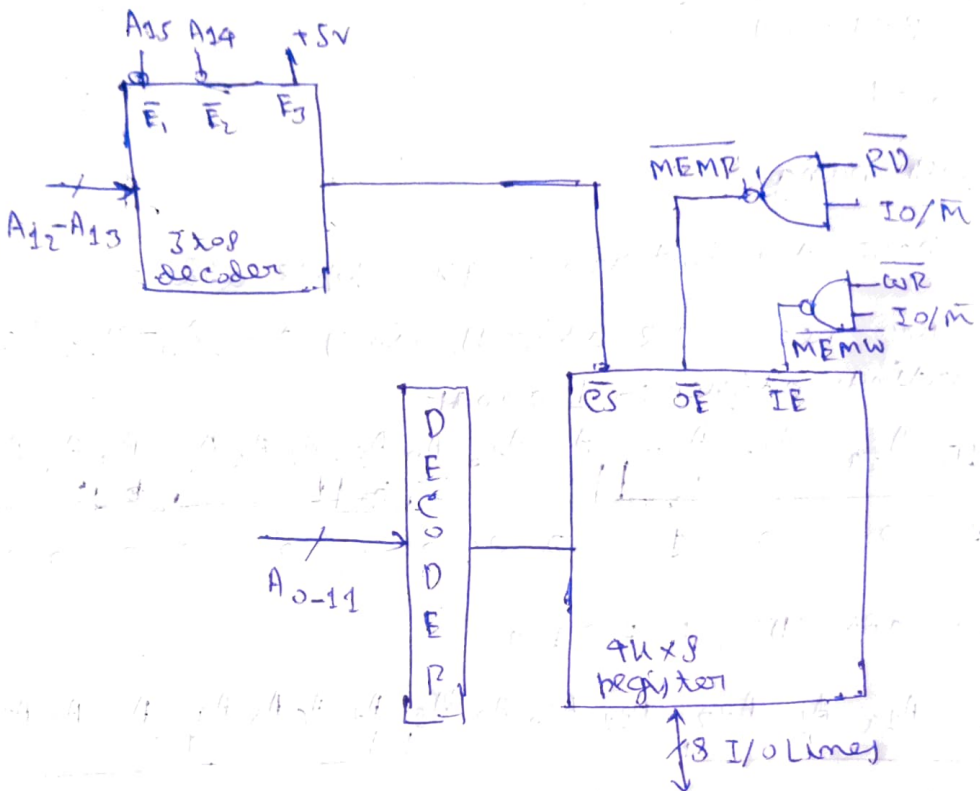 A15 A14 +5V
E̅1 E̅2 E3
A12-A13
3x08
decoder
M̅E̅M̅R̅
R̅D̅
IO/M̅
W̅R̅
IO/M̅
M̅E̅M̅W̅
C̅S̅ O̅E̅ I̅E̅
D
E
C
O
D
E
R
A0-11
4K x 8
register
8 I/O Lines